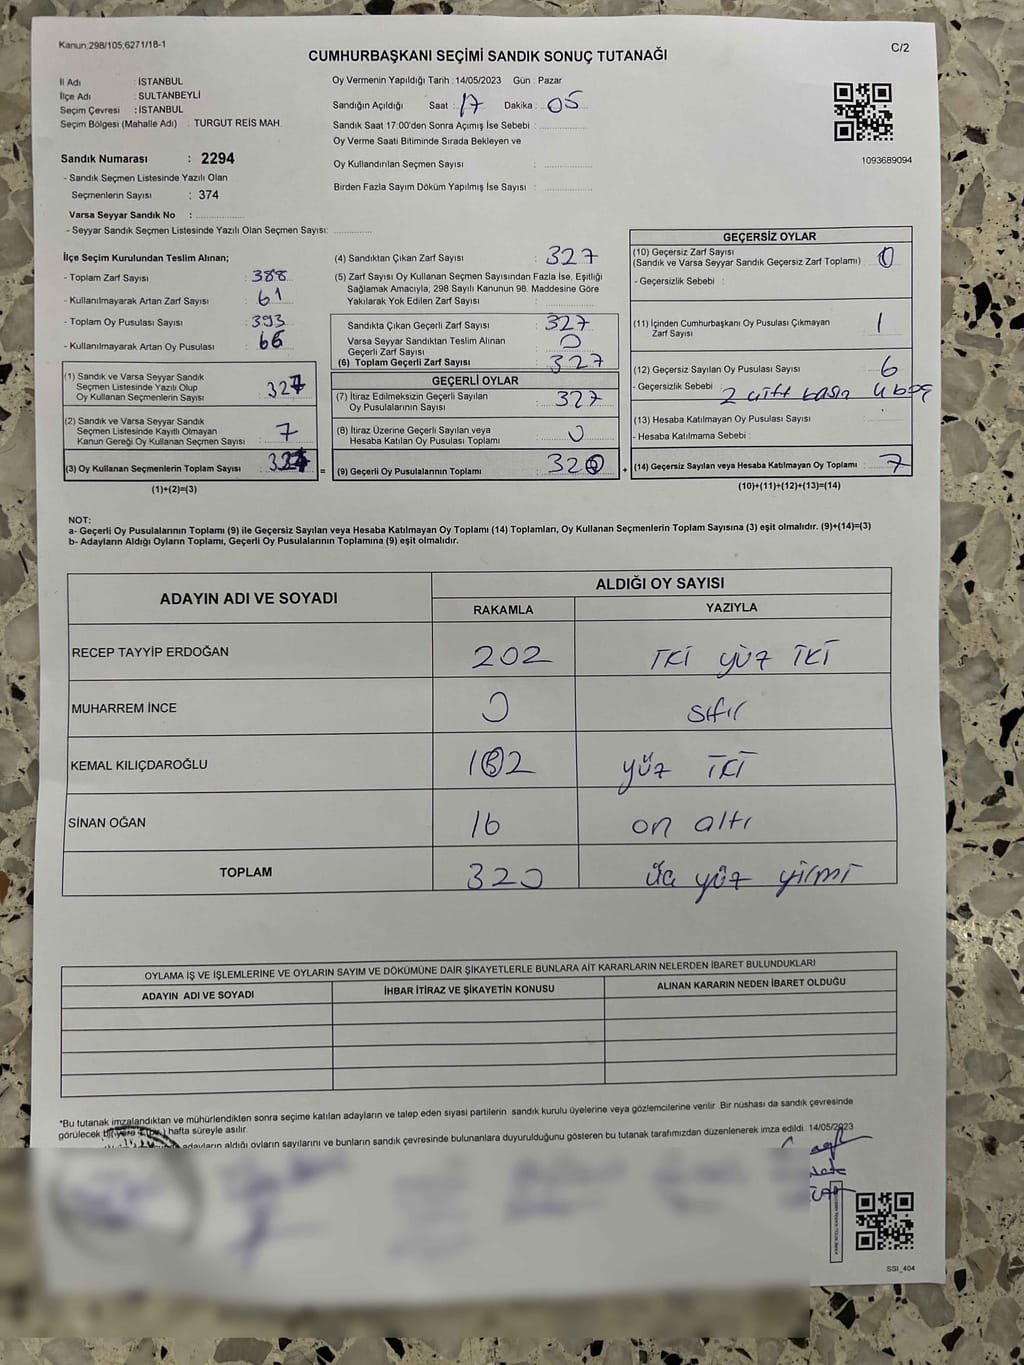 Kanun;298/105;6271/18-1
C/2
CUMHURBAŞKANI SEÇİMİ SANDIK SONUÇ TUTANAĞI
İl Adı : İSTANBUL
İlçe Adı : SULTANBEYLİ
Seçim Çevresi : İSTANBUL
Seçim Bölgesi (Mahalle Adı) : TURGUT REİS MAH.
Oy Vermenin Yapıldığı Tarih : 14/05/2023 Gün : Pazar
Sandığın Açıldığı Saat : 17 Dakika : 05
Sandık Saat 17:00'den Sonra Açımış İse Sebebi :
Oy Verme Saati Bitiminde Sırada Bekleyen ve
Oy Kullandırılan Seçmen Sayısı :
Birden Fazla Sayım Döküm Yapılmış İse Sayısı :
1093689094
Sandık Numarası : 2294
- Sandık Seçmen Listesinde Yazılı Olan
Seçmenlerin Sayısı : 374
Varsa Seyyar Sandık No :
- Seyyar Sandık Seçmen Listesinde Yazılı Olan Seçmen Sayısı:
İlçe Seçim Kurulundan Teslim Alınan;
- Toplam Zarf Sayısı : 388
- Kullanılmayarak Artan Zarf Sayısı : 61
- Toplam Oy Pusulası Sayısı : 393
- Kullanılmayarak Artan Oy Pusulası : 66
(1) Sandık ve Varsa Seyyar Sandık
Seçmen Listesinde Yazılı Olup
Oy Kullanan Seçmenlerin Sayısı :
(2) Sandık ve Varsa Seyyar Sandık
Seçmen Listesinde Kayıtlı Olmayan
Kanun Gereği Oy Kullanan Seçmen Sayısı : 7
(3) Oy Kullanan Seçmenlerin Toplam Sayısı :
(1)+(2)=(3)
(4) Sandıktan Çıkan Zarf Sayısı : 327
(5) Zarf Sayısı Oy Kullanan Seçmen Sayısından Fazla İse, Eşitliği
Sağlamak Amacıyla, 298 Sayılı Kanunun 98. Maddesine Göre
Yakılarak Yok Edilen Zarf Sayısı :
Sandıkta Çıkan Geçerli Zarf Sayısı : 327
Varsa Seyyar Sandıktan Teslim Alınan
Geçerli Zarf Sayısı : 0
(6) Toplam Geçerli Zarf Sayısı : 327
GEÇERLİ OYLAR
(7) İtiraz Edilmeksizin Geçerli Sayılan
Oy Pusulalarının Sayısı : 327
(8) İtiraz Üzerine Geçerli Sayılan veya
Hesaba Katılan Oy Pusulası Toplamı : 0
= (9) Geçerli Oy Pusulalarının Toplamı : 320 +
GEÇERSİZ OYLAR
(10) Geçersiz Zarf Sayısı
(Sandık ve Varsa Seyyar Sandık Geçersiz Zarf Toplamı) : 0
- Geçersizlik Sebebi :
(11) İçinden Cumhurbaşkanı Oy Pusulası Çıkmayan
Zarf Sayısı : 1
(12) Geçersiz Sayılan Oy Pusulası Sayısı : 6
- Geçersizlik Sebebi : 2 çift basın 4 boş
(13) Hesaba Katılmayan Oy Pusulası Sayısı :
- Hesaba Katılmama Sebebi :
(14) Geçersiz Sayılan veya Hesaba Katılmayan Oy Toplamı : 7
(10)+(11)+(12)+(13)=(14)
NOT:
a- Geçerli Oy Pusulalarının Toplamı (9) ile Geçersiz Sayılan veya Hesaba Katılmayan Oy Toplamı (14) Toplamları, Oy Kullanan Seçmenlerin Toplam Sayısına (3) eşit olmalıdır. (9)+(14)=(3)
b- Adayların Aldığı Oyların Toplamı, Geçerli Oy Pusulalarının Toplamına (9) eşit olmalıdır.
ADAYIN ADI VE SOYADI ALDIĞI OY SAYISI
RAKAMLA YAZIYLA
RECEP TAYYİP ERDOĞAN 202 İKİ yüz İKİ
MUHARREM İNCE 0 sıfır
KEMAL KILIÇDAROĞLU 102 yüz İKİ
SİNAN OĞAN 16 on altı
TOPLAM 320 üç yüz yirmi
OYLAMA İŞ VE İŞLEMLERİNE VE OYLARIN SAYIM VE DÖKÜMÜNE DAİR ŞİKAYETLERLE BUNLARA AİT KARARLARIN NELERDEN İBARET BULUNDUKLARI
ADAYIN ADI VE SOYADI İHBAR İTİRAZ VE ŞİKAYETİN KONUSU ALINAN KARARIN NEDEN İBARET OLDUĞU
*Bu tutanak imzalandıktan ve mühürlendikten sonra seçime katılan adayların ve talep eden siyasi partilerin sandık kurulu üyelerine veya gözlemcilerine verilir. Bir nüshası da sandık çevresinde
görülecek bir yere 1 (bir) hafta süreyle asılır.
adayların aldığı oyların sayılarını ve bunların sandık çevresinde bulunanlara duyurulduğunu gösteren bu tutanak tarafımızdan düzenlenerek imza edildi. 14/05/2023
SSI_404